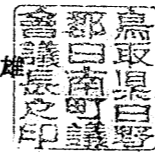 鳥取県日野
郡日南町議
會議長之印
雄